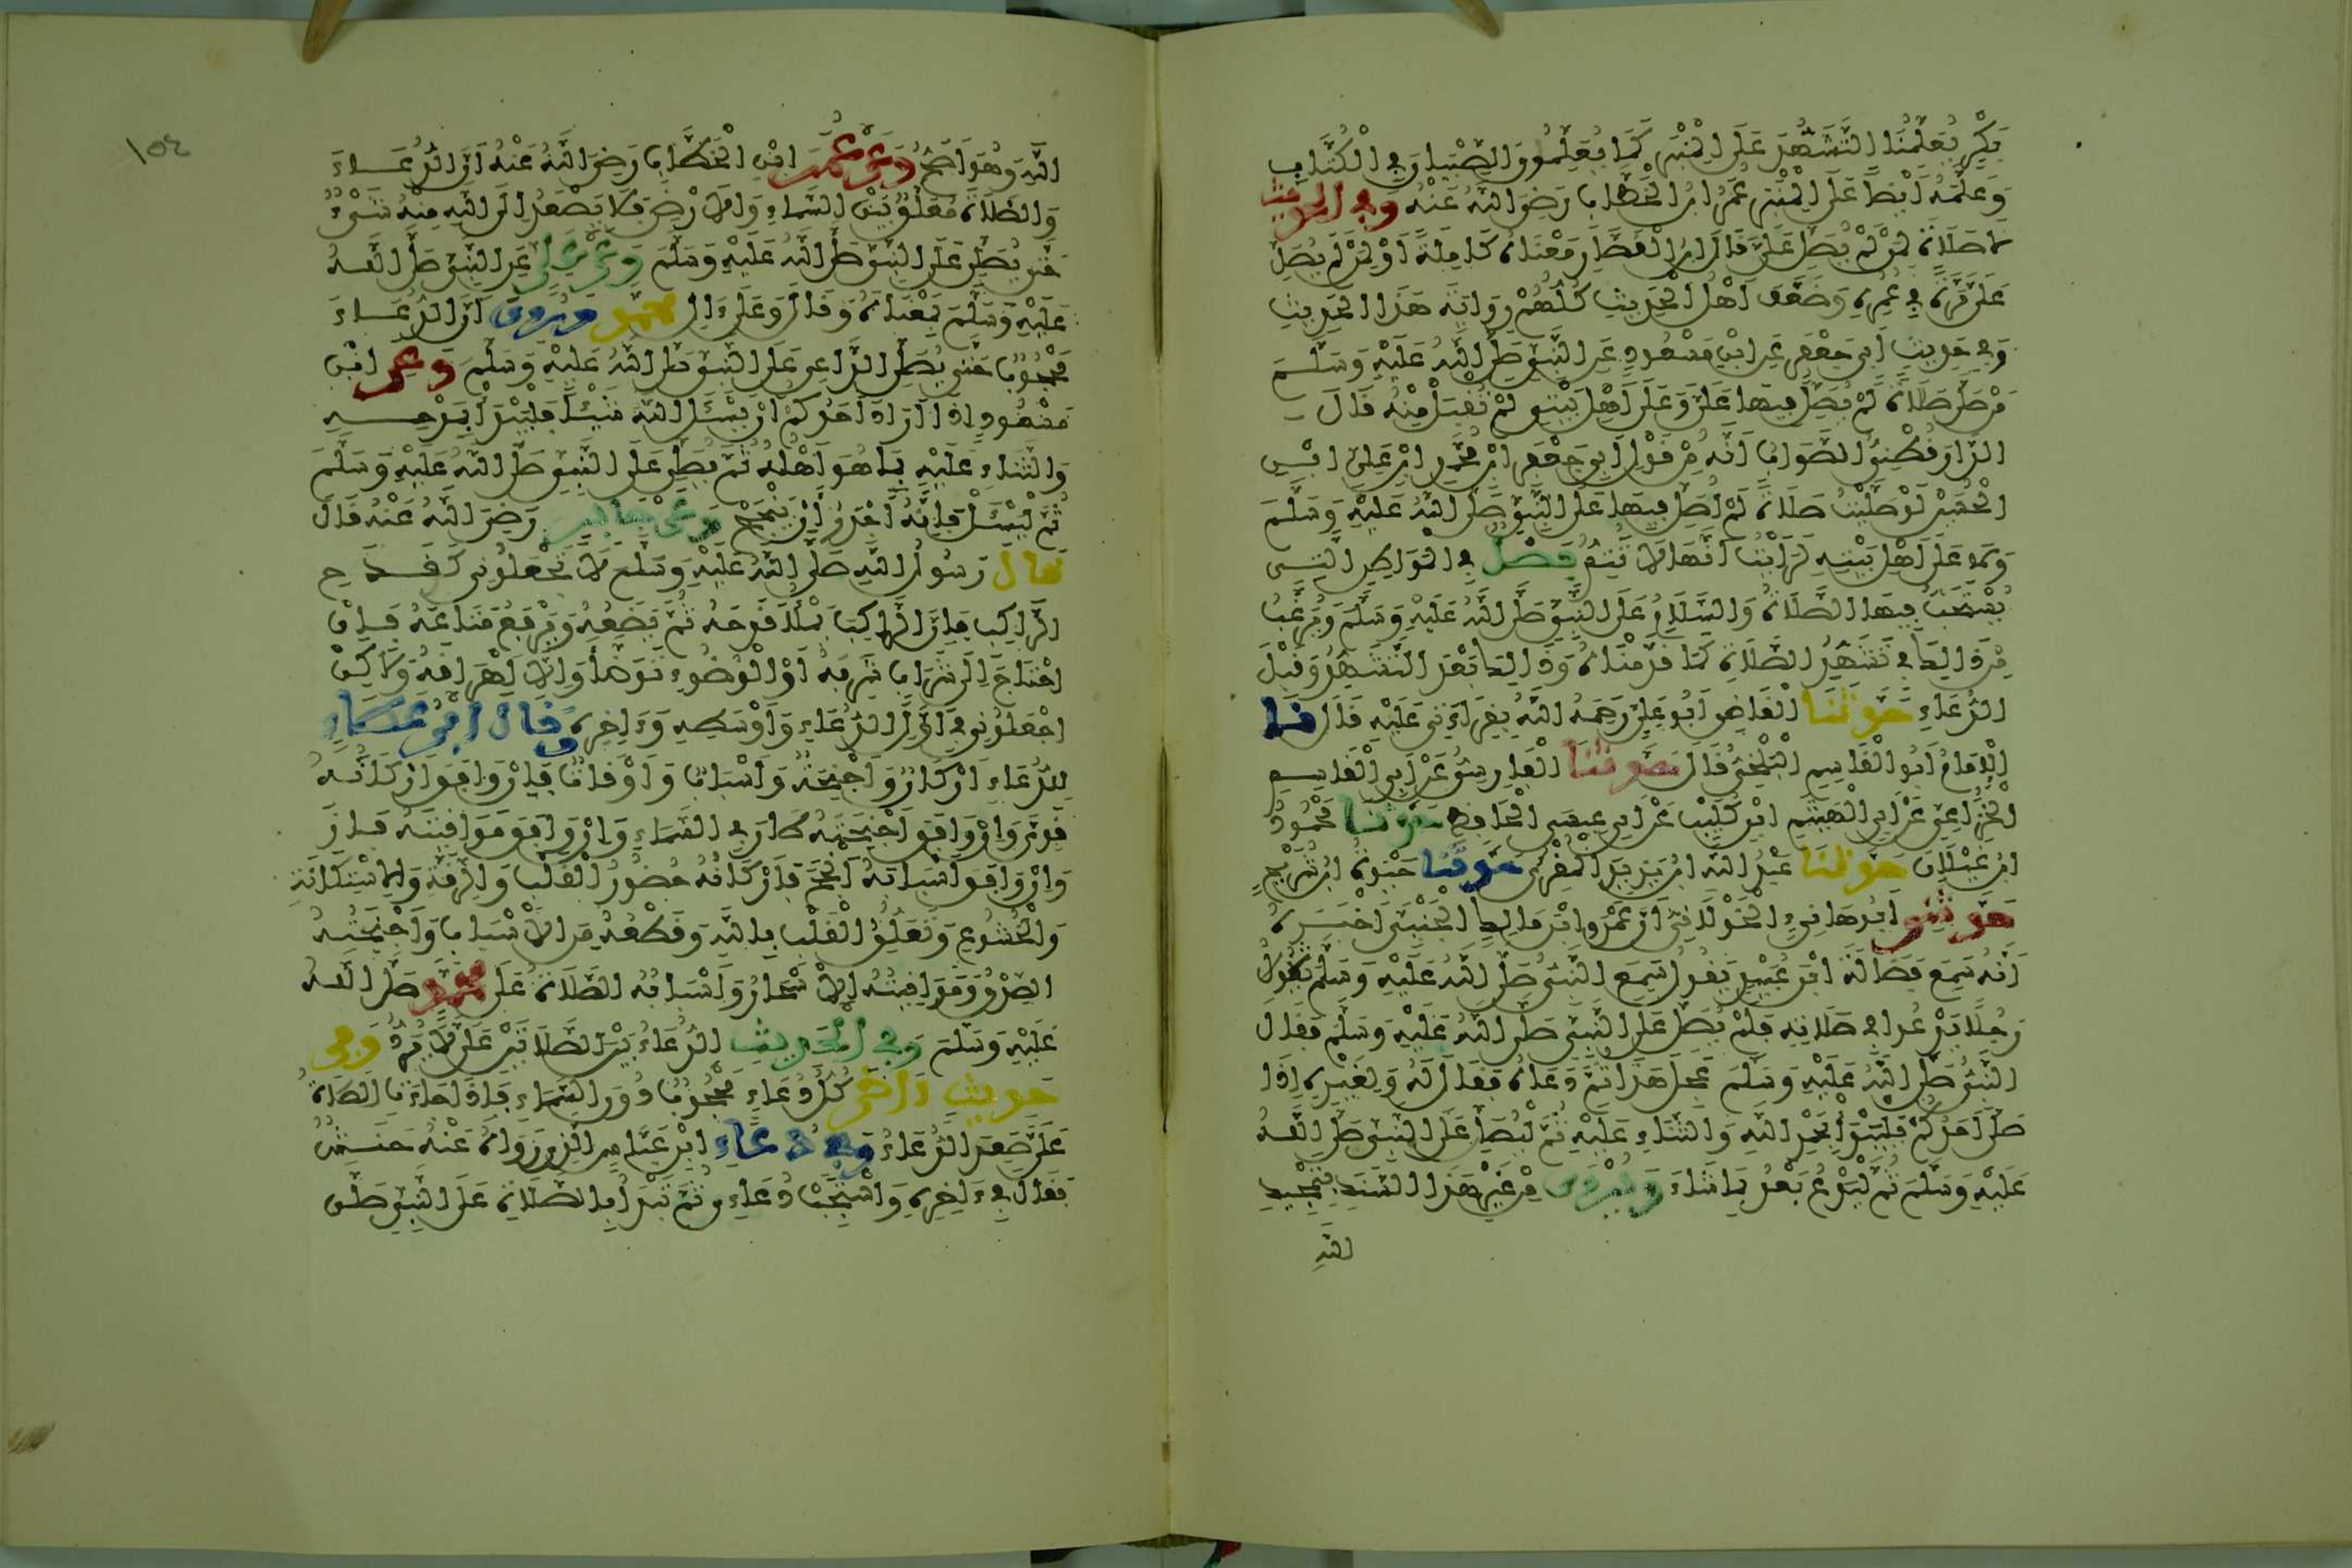 بَكْرٍ يُعَلِّمُنَا التَّشَهُّدَ عَلَى الْمِنْبَرِ كَمَا يُعَلِّمُونَ الصِّبْيَانَ فِي الْكُتَّابِ
وَعَلَّمَهُ أَيْضًا عَلَى الْمِنْبَرِ عُمَرُ ابْنُ الْخَطَّابِ رَضِيَ اللَّهُ عَنْهُ وَفِي الْحَدِيثِ
لَا صَلَاةَ لِمَنْ لَمْ يُصَلِّ عَلَيَّ قَالَ ابْنُ الْقَصَّارِ مَعْنَاهُ كَامِلَةً أَوْ لِمَنْ لَمْ يُصَلِّ
عَلَيَّ مَرَّةً فِي عُمُرِهِ وَضَعَّفَ أَهْلُ الْحَدِيثِ كُلُّهُمْ رِوَايَةَ هَذَا الْحَدِيثِ
وَفِي حَدِيثِ أَبِي جَعْفَرٍ عَنِ ابْنِ مَسْعُودٍ عَنِ النَّبِيِّ صَلَّى اللَّهُ عَلَيْهِ وَسَلَّمَ
مَنْ صَلَّى صَلَاةً لَمْ يُصَلِّ فِيهَا عَلَيَّ وَعَلَى أَهْلِ بَيْتِي لَمْ تُقْبَلْ مِنْهُ قَالَ
الدَّارَقُطْنِيُّ الصَّوَابُ أَنَّهُ مِنْ قَوْلِ أَبِي جَعْفَرٍ ابْنِ مُحَمَّدِ ابْنِ عَلِيِّ ابْنِ
الْحُسَيْنِ لَوْ صَلَّيْتُ صَلَاةً لَمْ أُصَلِّ فِيهَا عَلَى النَّبِيِّ صَلَّى اللَّهُ عَلَيْهِ وَسَلَّمَ
وَلَا عَلَى أَهْلِ بَيْتِهِ لَرَأَيْتُ أَنَّهَا لَا تَتِمُّ فَصْلٌ فِي الْمَوَاطِنِ الَّتِي
يُسْتَحَبُّ فِيهَا الصَّلَاةُ وَالسَّلَامُ عَلَى النَّبِيِّ صَلَّى اللَّهُ عَلَيْهِ وَسَلَّمَ وَيُرَغَّبُ
مِنْ ذَلِكَ فِي تَشَهُّدِ الصَّلَاةِ كَمَا قَدَّمْنَاهُ وَذَلِكَ بَعْدَ التَّشَهُّدِ وَقَبْلَ
الدُّعَاءِ حَدَّثَنَا الْقَاضِي أَبُو عَلِيٍّ رَحِمَهُ اللَّهُ بِقِرَاءَتِي عَلَيْهِ قَالَ نَا
الْإِمَامُ أَبُو الْقَاسِمِ الْبَلْخِيُّ قَالَ حَدَّثَنَا الْفَارِسِيُّ عَنْ أَبِي الْقَاسِمِ
الْخُزَاعِيِّ عَنْ أَبِي الْهَيْثَمِ ابْنِ كُلَيْبٍ عَنْ أَبِي عِيسَى الْحَافِظِ حَدَّثَنَا مَحْمُودُ
ابْنُ غَيْلَانَ حَدَّثَنَا عَبْدُ اللَّهِ ابْنُ يَزِيدَ الْمُقْرِئُ حَدَّثَنَا حَيْوَةُ ابْنُ شُرَيْحٍ
حَدَّثَنِي أَبُو هَانِئٍ الْخَوْلَانِيُّ أَنَّ عَمْرَو ابْنَ مَالِكٍ الْجَنْبِيَّ أَخْبَرَهُ
أَنَّهُ سَمِعَ فَضَالَةَ ابْنَ عُبَيْدٍ يَقُولُ سَمِعَ النَّبِيُّ صَلَّى اللَّهُ عَلَيْهِ وَسَلَّمَ يَقُولُ
رَجُلًا يَدْعُو فِي صَلَاتِهِ فَلَمْ يُصَلِّ عَلَى النَّبِيِّ صَلَّى اللَّهُ عَلَيْهِ وَسَلَّمَ فَقَالَ
النَّبِيُّ صَلَّى اللَّهُ عَلَيْهِ وَسَلَّمَ عَجِلَ هَذَا ثُمَّ دَعَاهُ فَقَالَ لَهُ وَلِغَيْرِهِ إِذَا
صَلَّى أَحَدُكُمْ فَلْيَبْدَأْ بِحَمْدِ اللَّهِ وَالثَّنَاءِ عَلَيْهِ ثُمَّ لْيُصَلِّ عَلَى النَّبِيِّ صَلَّى اللَّهُ
عَلَيْهِ وَسَلَّمَ ثُمَّ لْيَدْعُ بَعْدُ بِمَا شَاءَ وَيُرْوَى مِنْ غَيْرِ هَذَا السَّنَدِ بِتَمْجِيدِ
اللَّهِ
١٥٤
اللَّهِ وَهُوَ أَصَحُّ وَعَنْ عُمَرَ ابْنِ الْخَطَّابِ رَضِيَ اللَّهُ عَنْهُ أَنَّ الدُّعَاءَ
وَالصَّلَاةَ مُعَلَّقٌ بَيْنَ السَّمَاءِ وَالْأَرْضِ فَلَا يَصْعَدُ إِلَى اللَّهِ مِنْهُ شَيْءٌ
حَتَّى يُصَلَّى عَلَى النَّبِيِّ صَلَّى اللَّهُ عَلَيْهِ وَسَلَّمَ وَعَنْ عَلِيٍّ عَنِ النَّبِيِّ صَلَّى اللَّهُ
عَلَيْهِ وَسَلَّمَ بِمَعْنَاهُ وَقَالَ وَعَلَى ءَالِ مُحَمَّدٍ وَرُوِيَ أَنَّ الدُّعَاءَ
مَحْجُوبٌ حَتَّى يُصَلِّيَ الدَّاعِي عَلَى النَّبِيِّ صَلَّى اللَّهُ عَلَيْهِ وَسَلَّمَ وَعَنِ ابْنِ
مَسْعُودٍ إِذَا أَرَادَ أَحَدُكُمْ أَنْ يَسْئَلَ اللَّهَ شَيْئًا فَلْيَبْدَأْ بِمَدْحِهِ
وَالثَّنَاءِ عَلَيْهِ بِمَا هُوَ أَهْلُهُ ثُمَّ يُصَلِّي عَلَى النَّبِيِّ صَلَّى اللَّهُ عَلَيْهِ وَسَلَّمَ
ثُمَّ لْيَسْئَلْ فَإِنَّهُ أَجْدَرُ أَنْ يَنْجَحَ وَعَنْ جَابِرٍ رَضِيَ اللَّهُ عَنْهُ قَالَ
قَالَ رَسُولُ اللَّهِ صَلَّى اللَّهُ عَلَيْهِ وَسَلَّمَ لَا تَجْعَلُونِي كَقَدَحِ
الرَّاكِبِ فَإِنَّ الرَّاكِبَ يَمْلَأُ قَدَحَهُ ثُمَّ يَضَعُهُ وَيَرْفَعُ مَتَاعَهُ فَإِنِ
احْتَاجَ إِلَى شَرَابٍ شَرِبَهُ أَوِ الْوُضُوءِ تَوَضَّأَ وَإِلَّا أَهْرَاقَهُ وَلَكِنْ
اجْعَلُونِي فِي أَوَّلِ الدُّعَاءِ وَأَوْسَطِهِ وَءَاخِرِهِ وَقَالَ ابْنُ عَطَاءٍ
لِلدُّعَاءِ أَرْكَانٌ وَأَجْنِحَةٌ وَأَسْبَابٌ وَأَوْقَاتٌ فَإِنْ وَافَقَ أَرْكَانَهُ
قَوِيَ وَإِنْ وَافَقَ أَجْنِحَتَهُ طَارَ فِي السَّمَاءِ وَإِنْ وَافَقَ مَوَاقِيتَهُ فَازَ
وَإِنْ وَافَقَ أَسْبَابَهُ أَنْجَحَ فَأَرْكَانُهُ حُضُورُ الْقَلْبِ وَالرِّقَّةُ وَالِاسْتِكَانَةُ
وَالْخُشُوعُ وَتَعَلُّقُ الْقَلْبِ بِاللَّهِ وَقَطْعُهُ مِنَ الْأَسْبَابِ وَأَجْنِحَتُهُ
الصِّدْقُ وَمَوَاقِيتُهُ الْأَسْحَارُ وَأَسْبَابُهُ الصَّلَاةُ عَلَى مُحَمَّدٍ صَلَّى اللَّهُ
عَلَيْهِ وَسَلَّمَ وَفِي الْحَدِيثِ الدُّعَاءُ بَيْنَ الصَّلَاتَيْنِ عَلَيَّ لَا يُرَدُّ وَفِي
حَدِيثٍ ءَاخَرَ كُلُّ دُعَاءٍ مَحْجُوبٌ دُونَ السَّمَاءِ فَإِذَا جَاءَتِ الصَّلَاةُ
عَلَيَّ صَعِدَ الدُّعَاءُ وَفِي دُعَاءِ ابْنِ عَبَّاسٍ الَّذِي رَوَاهُ عَنْهُ حَنَشٌ
فَقَالَ فِي ءَاخِرِهِ وَاسْتَجِبْ دُعَاءِي ثُمَّ تَبْدَأُ بِالصَّلَاةِ عَلَى النَّبِيِّ صَلَّى